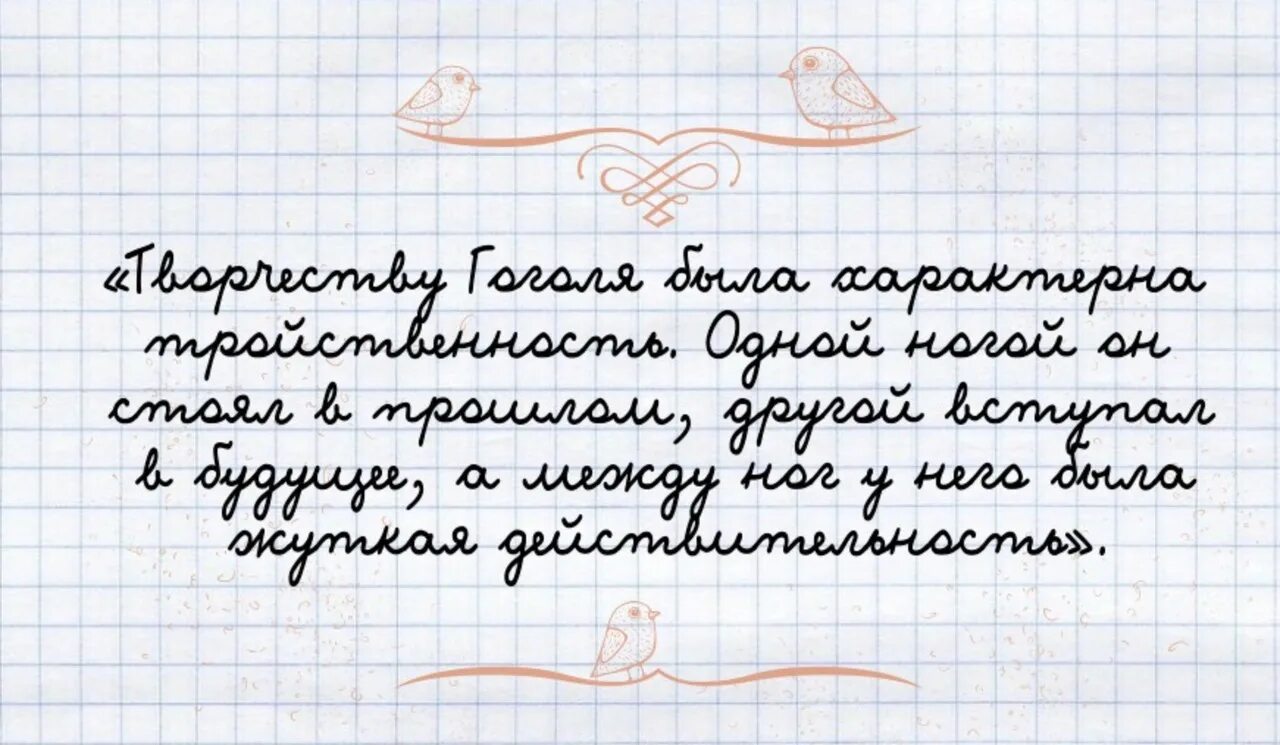 «Творчеству Гоголя была характерна
тройственность. Одной ногой он
стоял в прошлом, другой вступал
в будущее, а между ног у него была
жуткая действительность».